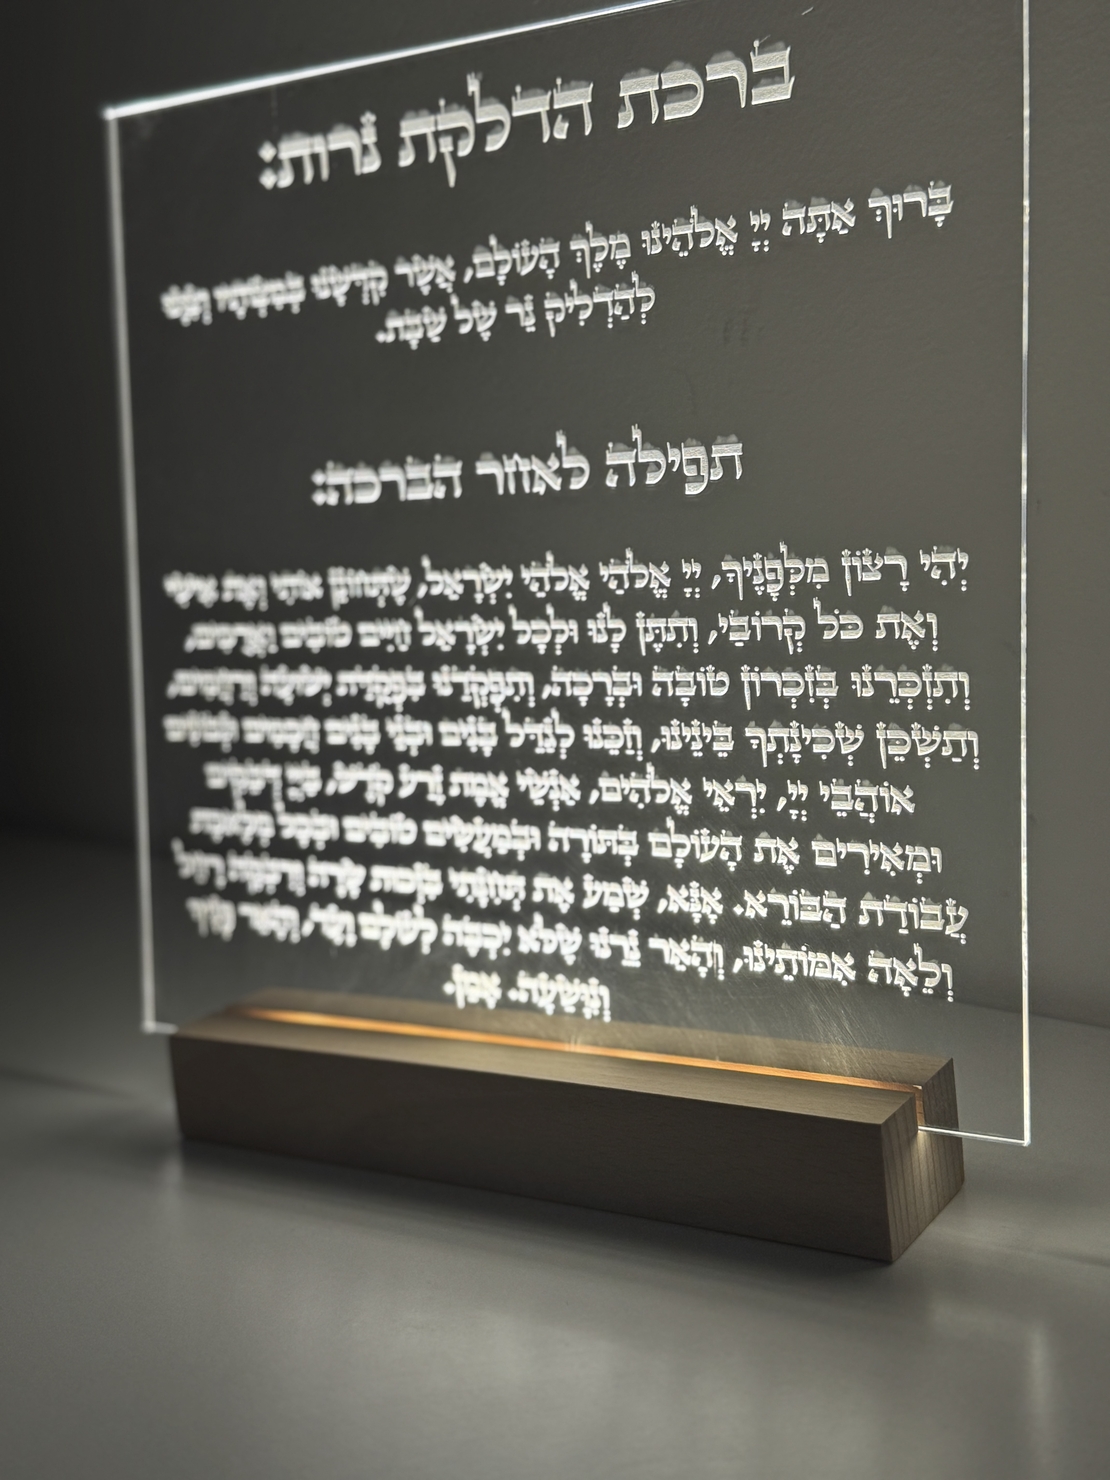 ברכת הדלקת נרות:
בָּרוּךְ אַתָּה יְיָ אֱלֹהֵינוּ מֶלֶךְ הָעוֹלָם, אֲשֶׁר קִדְּשָׁנוּ בְּמִצְוֹתָיו וְצִוָּנוּ
לְהַדְלִיק נֵר שֶׁל שַׁבָּת.
תפילה לאחר הברכה:
יְהִי רָצוֹן מִלְּפָנֶיךָ, יְיָ אֱלֹהַי אֱלֹהֵי יִשְׂרָאֵל, שֶׁתְּחוֹנֵן אוֹתִי וְאֶת אִישִׁי
וְאֶת כֹּל קְרוֹבַי, וְתִתֵּן לָנוּ וּלְכָל יִשְׂרָאֵל חַיִּים טוֹבִים וַאֲרֻכִּים,
וְתִזְכְּרֵנוּ בְּזִכְרוֹן טוֹבָה וּבְרָכָה, וְתִפְקְדֵנוּ בִּפְקֻדַּת יְשׁוּעָה וְרַחֲמִים,
וְתַשְׁכֵּן שְׁכִינָתְךָ בֵּינֵינוּ, וְזַכֵּנוּ לְגַדֵּל בָּנִים וּבְנֵי בָנִים חֲכָמִים וּנְבוֹנִים
אוֹהֲבֵי יְיָ, יִרְאֵי אֱלֹהִים, אַנְשֵׁי אֱמֶת זֶרַע קֹדֶשׁ, בַּיְיָ דְּבֵקִים
וּמְאִירִים אֶת הָעוֹלָם בְּתּוֹרָה וּבְמַעֲשִׂים טוֹבִים וּבְכָל מְלֶאכֶת
עֲבוֹדַת הַבּוֹרֵא. אָנָּא, שְׁמַע אֶת תְּחִנָּתִי בִּזְכוּת שָׂרָה וְרִבְקָה וְרָחֵל
וְלֵאָה אִמּוֹתֵינוּ, וְהָאֵר נֵרֵנוּ שֶׁלֹּא יִכְבֶּה לְעוֹלָם וָעֶד, וְהָאֵר פָּנֶיךָ
וְנִוָּשֵׁעָה. אָמֵן.